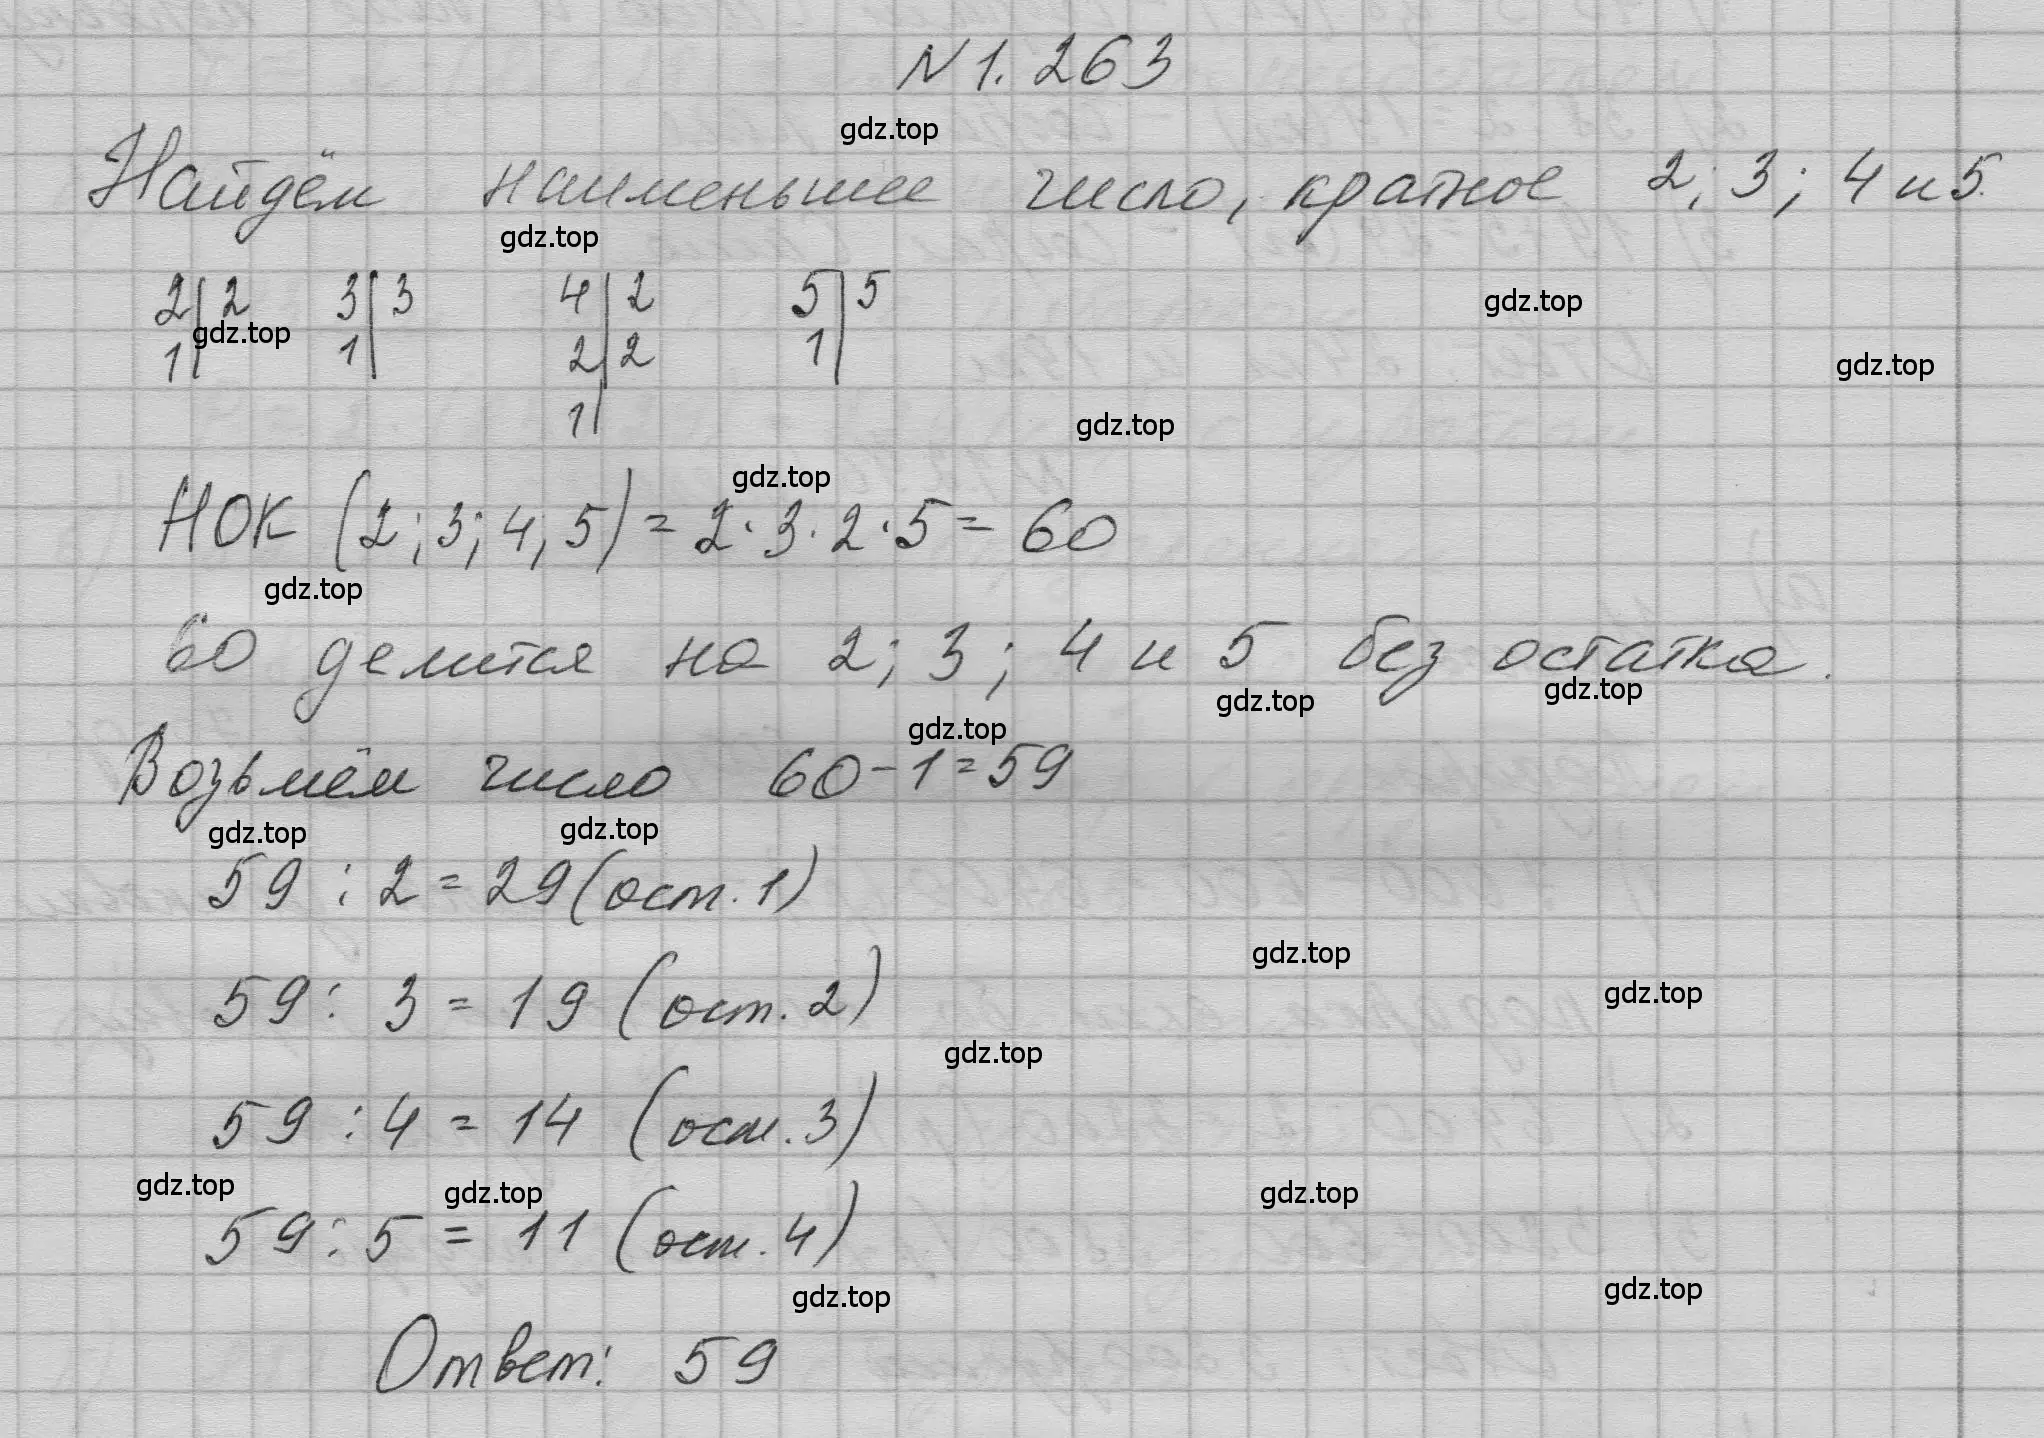 N 1. 263
gdz.top
Найдём наименьшее число, кратное 2; 3; 4 и 5.
gdz.top
2|2 3|3 4|2 5|5
gdz.top
gdz.top
1| 1| 2|2 1|
gdz.top
1|
gdz.top
gdz.top
НОК (2; 3; 4; 5) = 2·3·2·5 = 60
gdz.top
60 делится на 2; 3; 4 и 5 без остатка.
gdz.top
gdz.top
gdz.top
Возьмём число 60-1=59
gdz.top
gdz.top
59 : 2 = 29 (ост. 1)
gdz.top
59 : 3 = 19 (ост. 2)
gdz.top
gdz.top
59 : 4 = 14 (ост. 3)
gdz.top
gdz.top
gdz.top
59 : 5 = 11 (ост. 4)
gdz.top
gdz.top
Ответ: 59